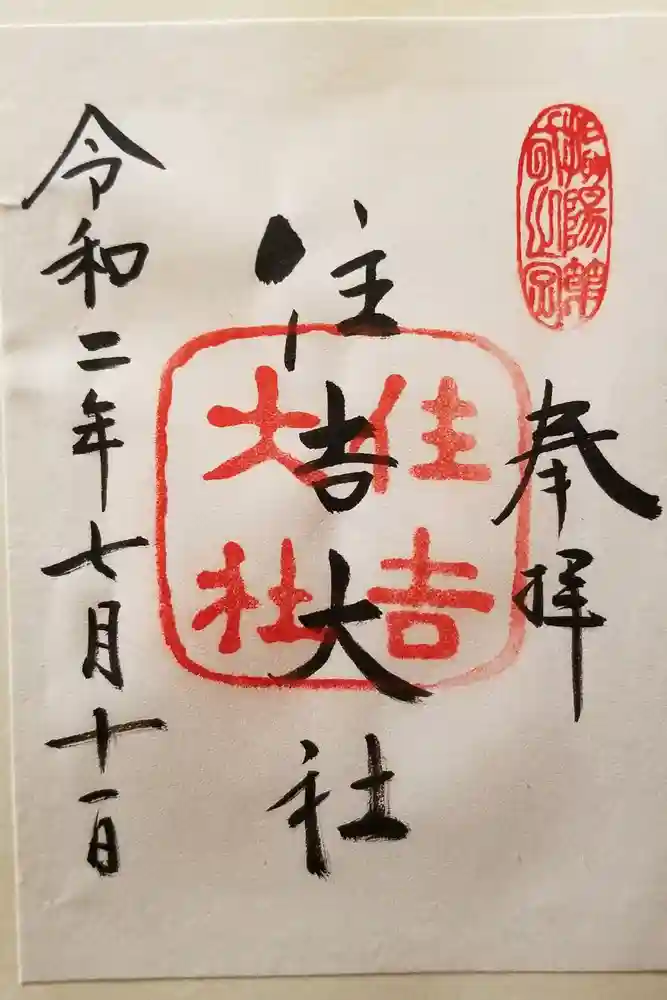 奉拝
住吉大社
住吉
大社
令和二年七月十一日